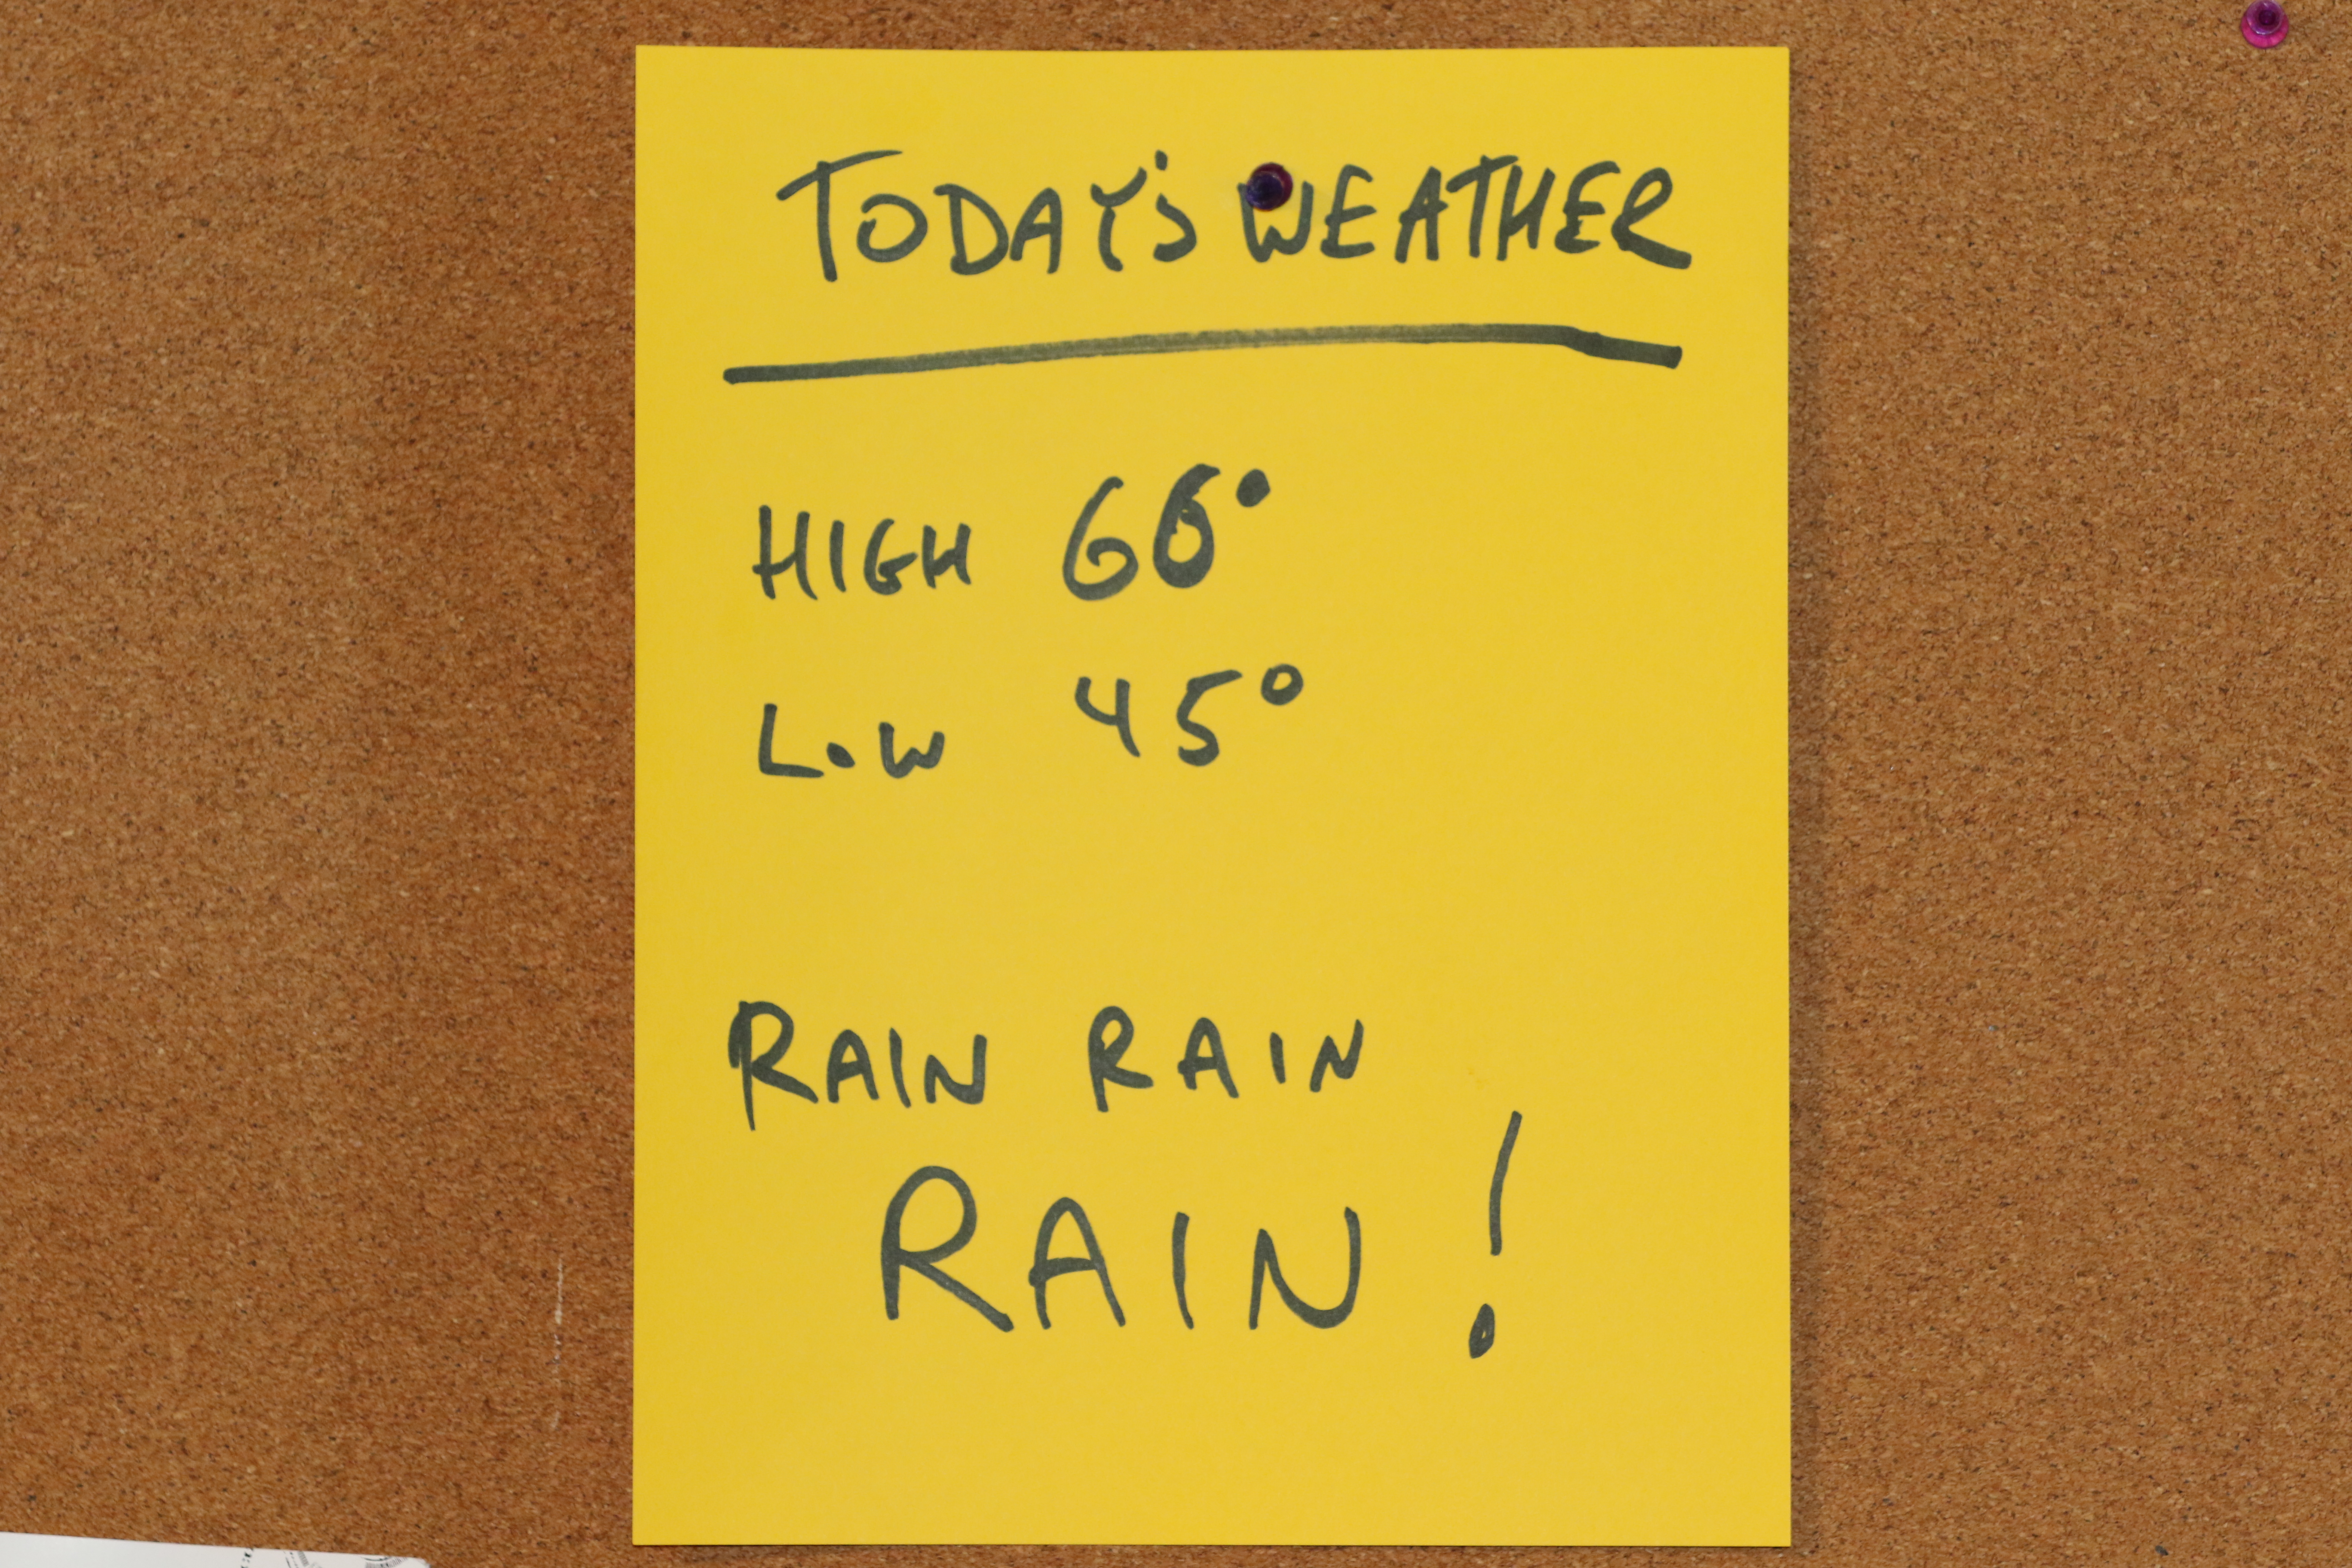 TODAY'S WEATHER
HIGH 66°
LOW 45°
RAIN RAIN
RAIN !